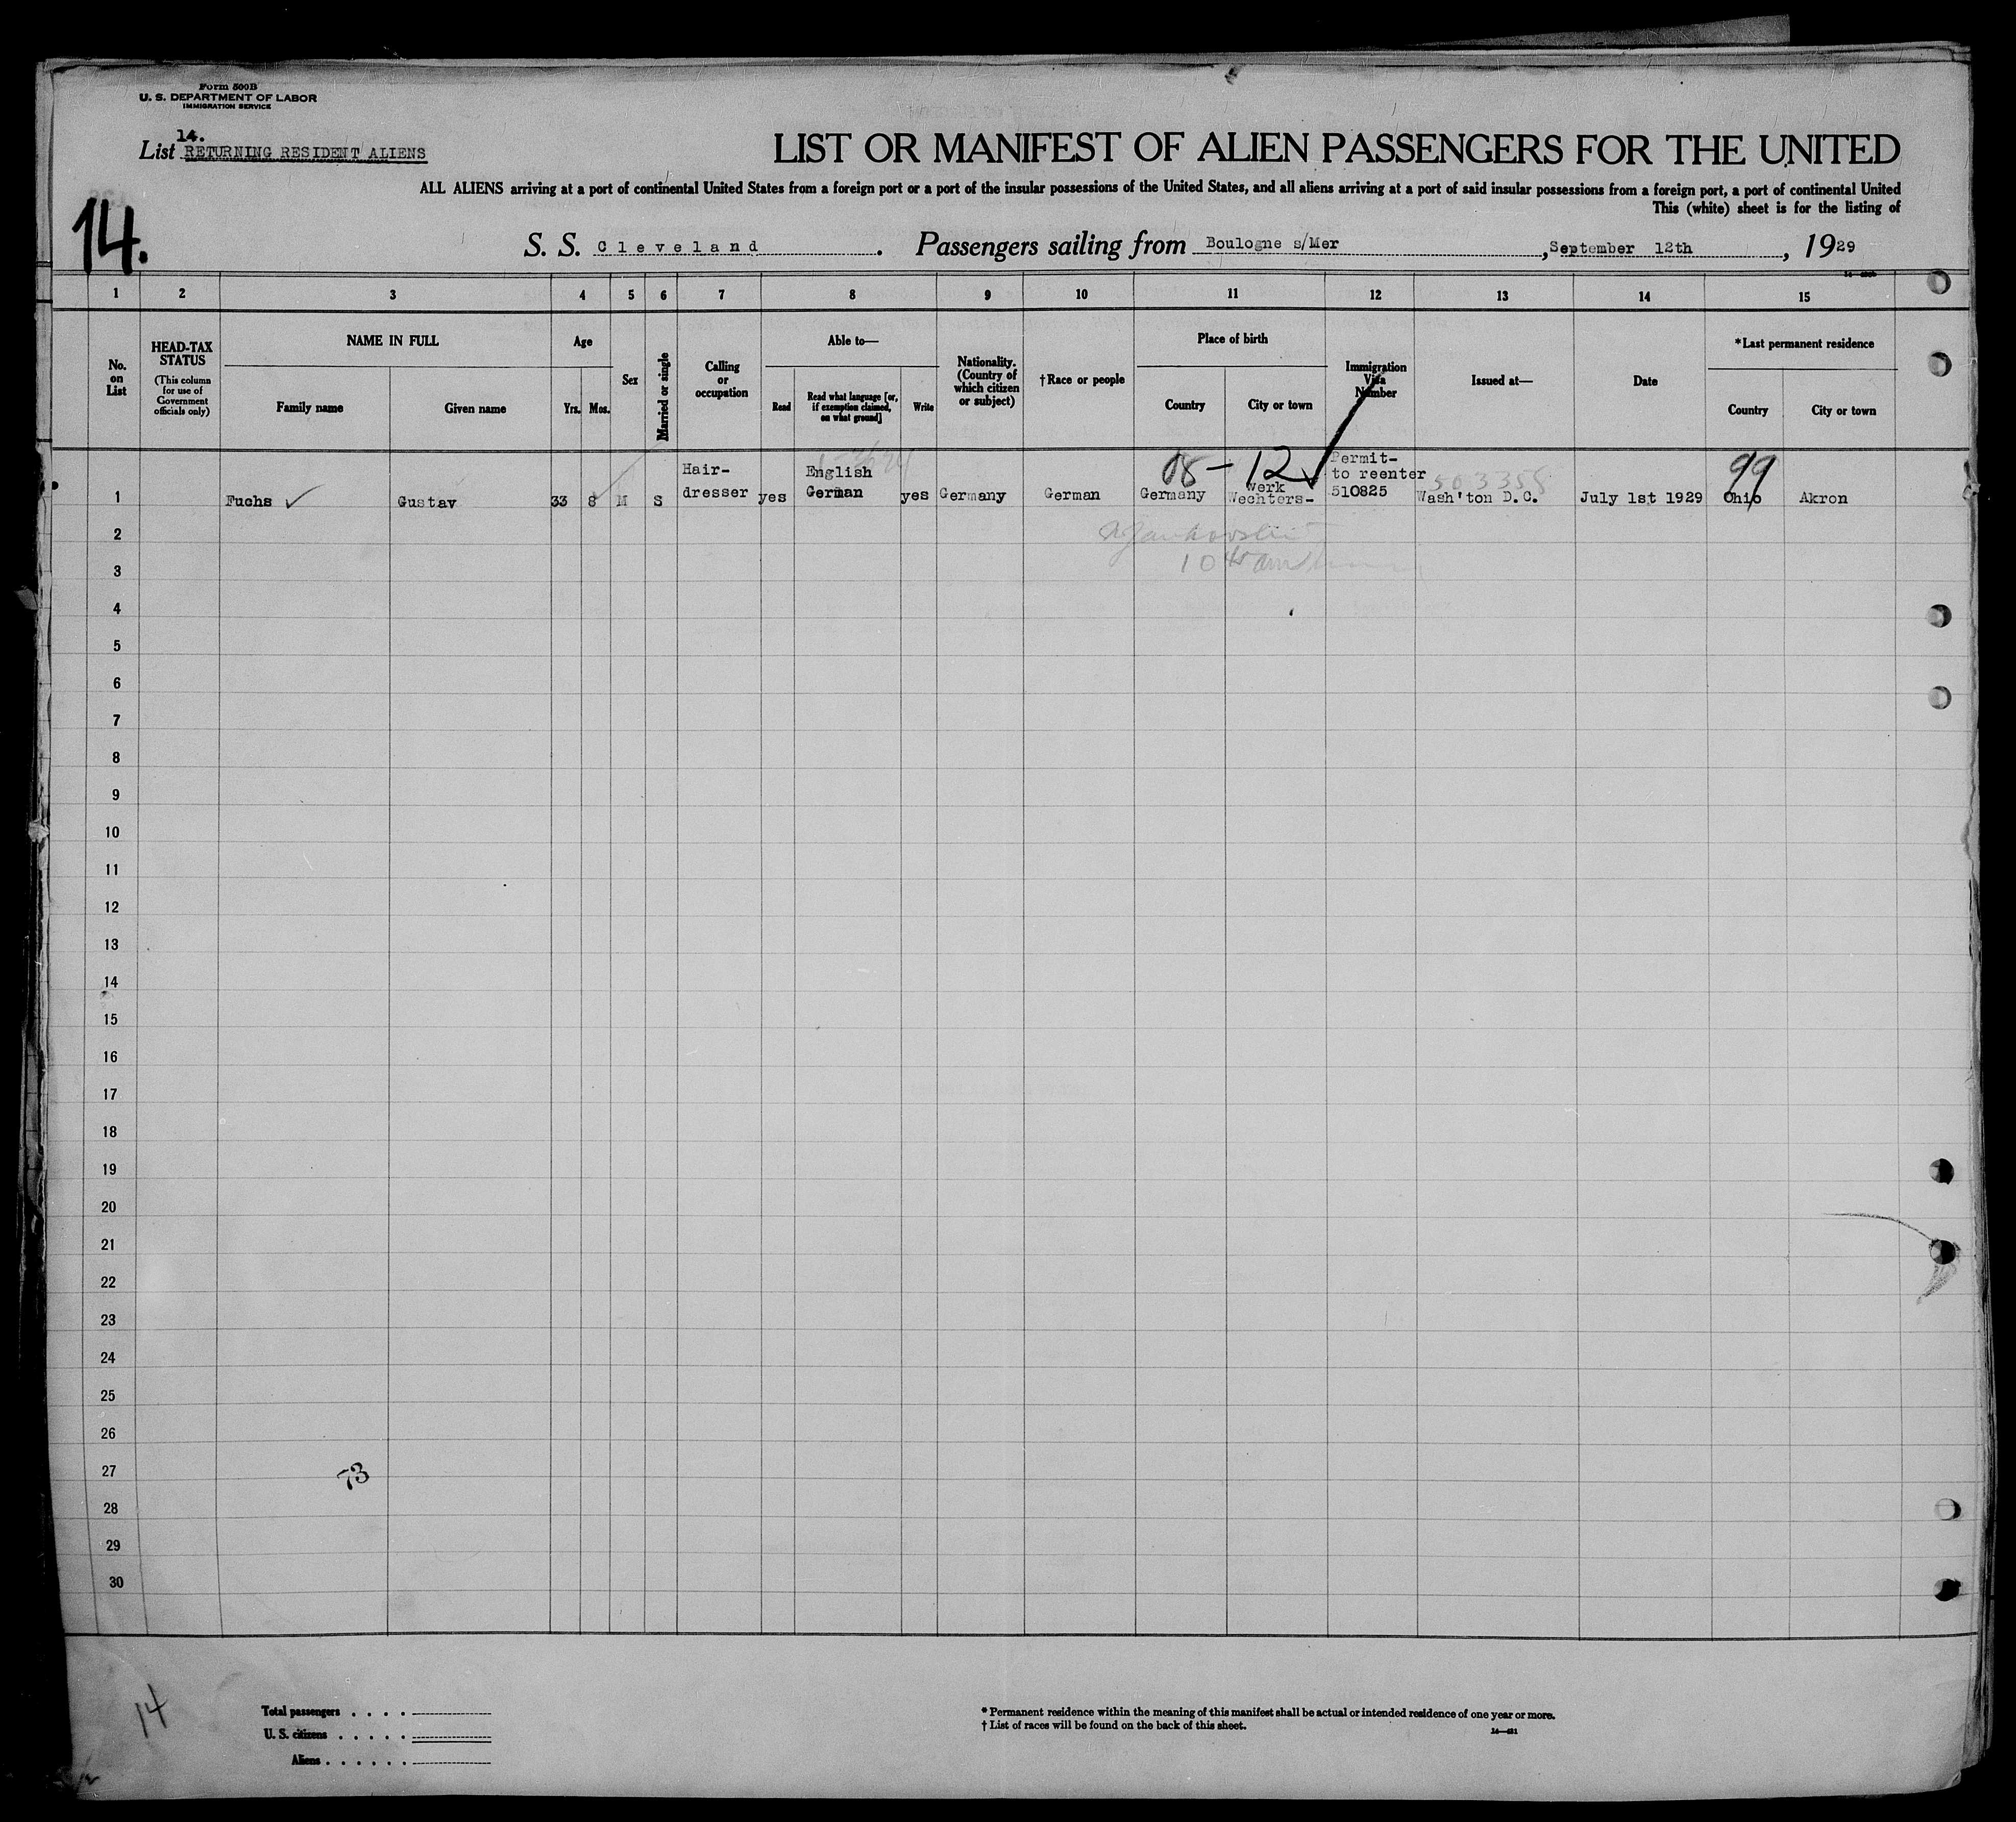 Form 500B
U. S. DEPARTMENT OF LABOR
IMMIGRATION SERVICE
14.
List RETURNING RESIDENT ALIENS
LIST OR MANIFEST OF ALIEN PASSENGERS FOR THE UNITED
ALL ALIENS arriving at a port of continental United States from a foreign port or a port of the insular possessions of the United States, and all aliens arriving at a port of said insular possessions from a foreign port, a port of continental United
This (white) sheet is for the listing of
14.
S. S. Cleveland. Passengers sailing from Boulogne s/Mer, September 12th, 1929
1 2 3 4 5 6 7 8 9 10 11 12 13 14 15
No. on List
HEAD-TAX STATUS
(This column for use of Government officials only)
NAME IN FULL
Family name Given name
Age
Yrs. Mos.
Sex
Married or single
Calling or occupation
Able to—
Read
Read what language [or, if exemption claimed, on what ground]
Write
Nationality. (Country of which citizen or subject)
†Race or people
Place of birth
Country City or town
Immigration Visa Number
Issued at—
Date
*Last permanent residence
Country City or town
08 - 12 99
1 Fuchs Gustav 33 8 M S Hair-dresser yes English German yes Germany German Germany werk Wechters- Permit- to reenter 510825 Wash'ton D.C. July 1st 1929 Ohio Akron
503358
2
3
4
5
6
7
8
9
10
11
12
13
14
15
16
17
18
19
20
21
22
23
24
25
26
27
73
28
29
30
14
Total passengers . . . .
U. S. citizens . . . . .
Aliens . . . . . .
* Permanent residence within the meaning of this manifest shall be actual or intended residence of one year or more.
† List of races will be found on the back of this sheet.